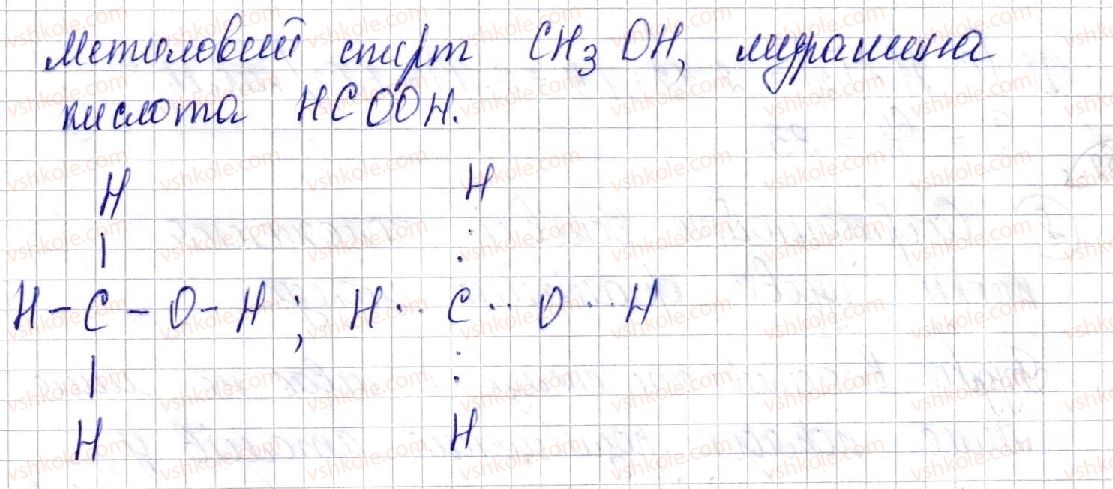 Метиловий спирт CH3OH, мурашина
кислота HCOOH.
H H
| :
H – C – O – H ; H ·· C ·· O ·· H
| :
H H